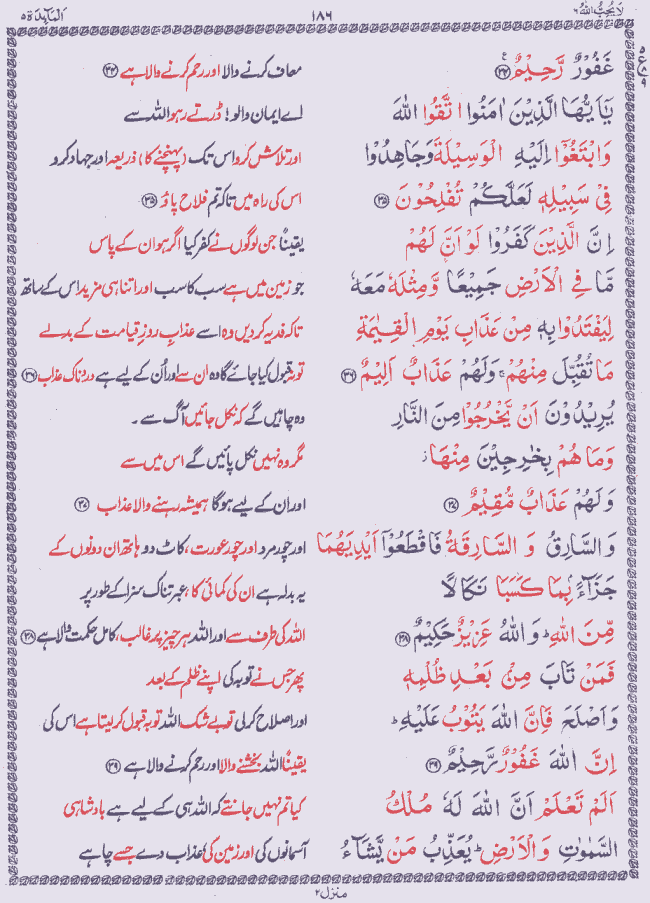 لَا یُحِبُّ اللّٰهُ ۶ ۱۸۶ اَلْمَآىِٕدَة ۵
غَفُوْرٌ رَّحِیْمٌ ﴿۳۴﴾ معاف کرنے والا اور رحم کرنے والا ہے ﴿۳۴﴾
یٰۤاَیُّهَا الَّذِیْنَ اٰمَنُوا اتَّقُوا اللّٰهَ اے ایمان والو! ڈرتے رہو اللہ سے
وَابْتَغُوْۤا اِلَیْهِ الْوَسِیْلَةَ وَجَاهِدُوْا اور تلاش کرو اس تک (پہنچنے کا) ذریعہ اور جہاد کرو
فِیْ سَبِیْلِهٖ لَعَلَّكُمْ تُفْلِحُوْنَ ﴿۳۵﴾ اس کی راہ میں تاکہ تم فلاح پاؤ ﴿۳۵﴾
اِنَّ الَّذِیْنَ كَفَرُوْا لَوْ اَنَّ لَهُمْ یقیناً جن لوگوں نے کفر کیا اگر ہو ان کے پاس
مَّا فِی الْاَرْضِ جَمِیْعًا وَّمِثْلَهٗ مَعَهٗ جو زمین میں ہے سب کا سب اور اتنا ہی مزید اس کے ساتھ
لِیَفْتَدُوْا بِهٖ مِنْ عَذَابِ یَوْمِ الْقِیٰمَةِ تاکہ فدیہ کر دیں وہ اسے عذاب روزِ قیامت کے بدلے
مَا تُقُبِّلَ مِنْهُمْ ۚ وَلَهُمْ عَذَابٌ اَلِیْمٌ ﴿۳۶﴾ تو نہ قبول کیا جائے گا وہ ان سے اور اُن کے لیے ہے دردناک عذاب ﴿۳۶﴾
یُرِیْدُوْنَ اَنْ یَّخْرُجُوْا مِنَ النَّارِ وہ چاہیں گے کہ نکل جائیں آگ سے ۔
وَمَا هُمْ بِخٰرِجِیْنَ مِنْهَا ز مگر وہ نہیں نکل پائیں گے اس میں سے
وَلَهُمْ عَذَابٌ مُّقِیْمٌ ﴿۳۷﴾ اور ان کے لیے ہوگا ہمیشہ رہنے والا عذاب ﴿۳۷﴾
وَالسَّارِقُ وَ السَّارِقَةُ فَاقْطَعُوْۤا اَیْدِیَهُمَا اور چور مرد اور چور عورت، کاٹ دو ہاتھ ان دونوں کے
جَزَآءًۢ بِمَا كَسَبَا نَكَالًا یہ بدلہ ہے ان کی کمائی کا، عبرتناک سزا کے طور پر
مِّنَ اللّٰهِ ؕ وَ اللّٰهُ عَزِیْزٌ حَكِیْمٌ ﴿۳۸﴾ اللہ کی طرف سے اور اللہ ہر چیز پر غالب، کامل حکمت والا ہے ﴿۳۸﴾
فَمَنْ تَابَ مِنْۢ بَعْدِ ظُلْمِهٖ پھر جس نے توبہ کی اپنے ظلم کے بعد
وَ اَصْلَحَ فَاِنَّ اللّٰهَ یَتُوْبُ عَلَیْهِ ؕ اور اصلاح کر لی تو بے شک اللہ توبہ قبول کر لیتا ہے اس کی
اِنَّ اللّٰهَ غَفُوْرٌ رَّحِیْمٌ ﴿۳۹﴾ یقیناً اللہ بخشنے والا اور رحم کرنے والا ہے ﴿۳۹﴾
اَلَمْ تَعْلَمْ اَنَّ اللّٰهَ لَهٗ مُلْكُ کیا تم نہیں جانتے کہ اللہ ہی کے لیے ہے بادشاہی
السَّمٰوٰتِ وَ الْاَرْضِ ؕ یُعَذِّبُ مَنْ یَّشَآءُ آسمانوں کی اور زمین کی؟ عذاب دے جسے چاہے
منزل ۲